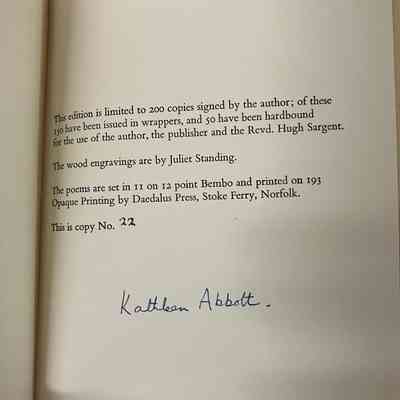 This edition is limited to 200 copies signed by the author; of these
150 have been issued in wrappers, and 50 have been hardbound
for the use of the author, the publisher and the Revd. Hugh Sargent.
The wood engravings are by Juliet Standing.
The poems are set in 11 on 12 point Bembo and printed on 193
Opaque Printing by Daedalus Press, Stoke Ferry, Norfolk.
This is copy No. 22
Kathleen Abbott.